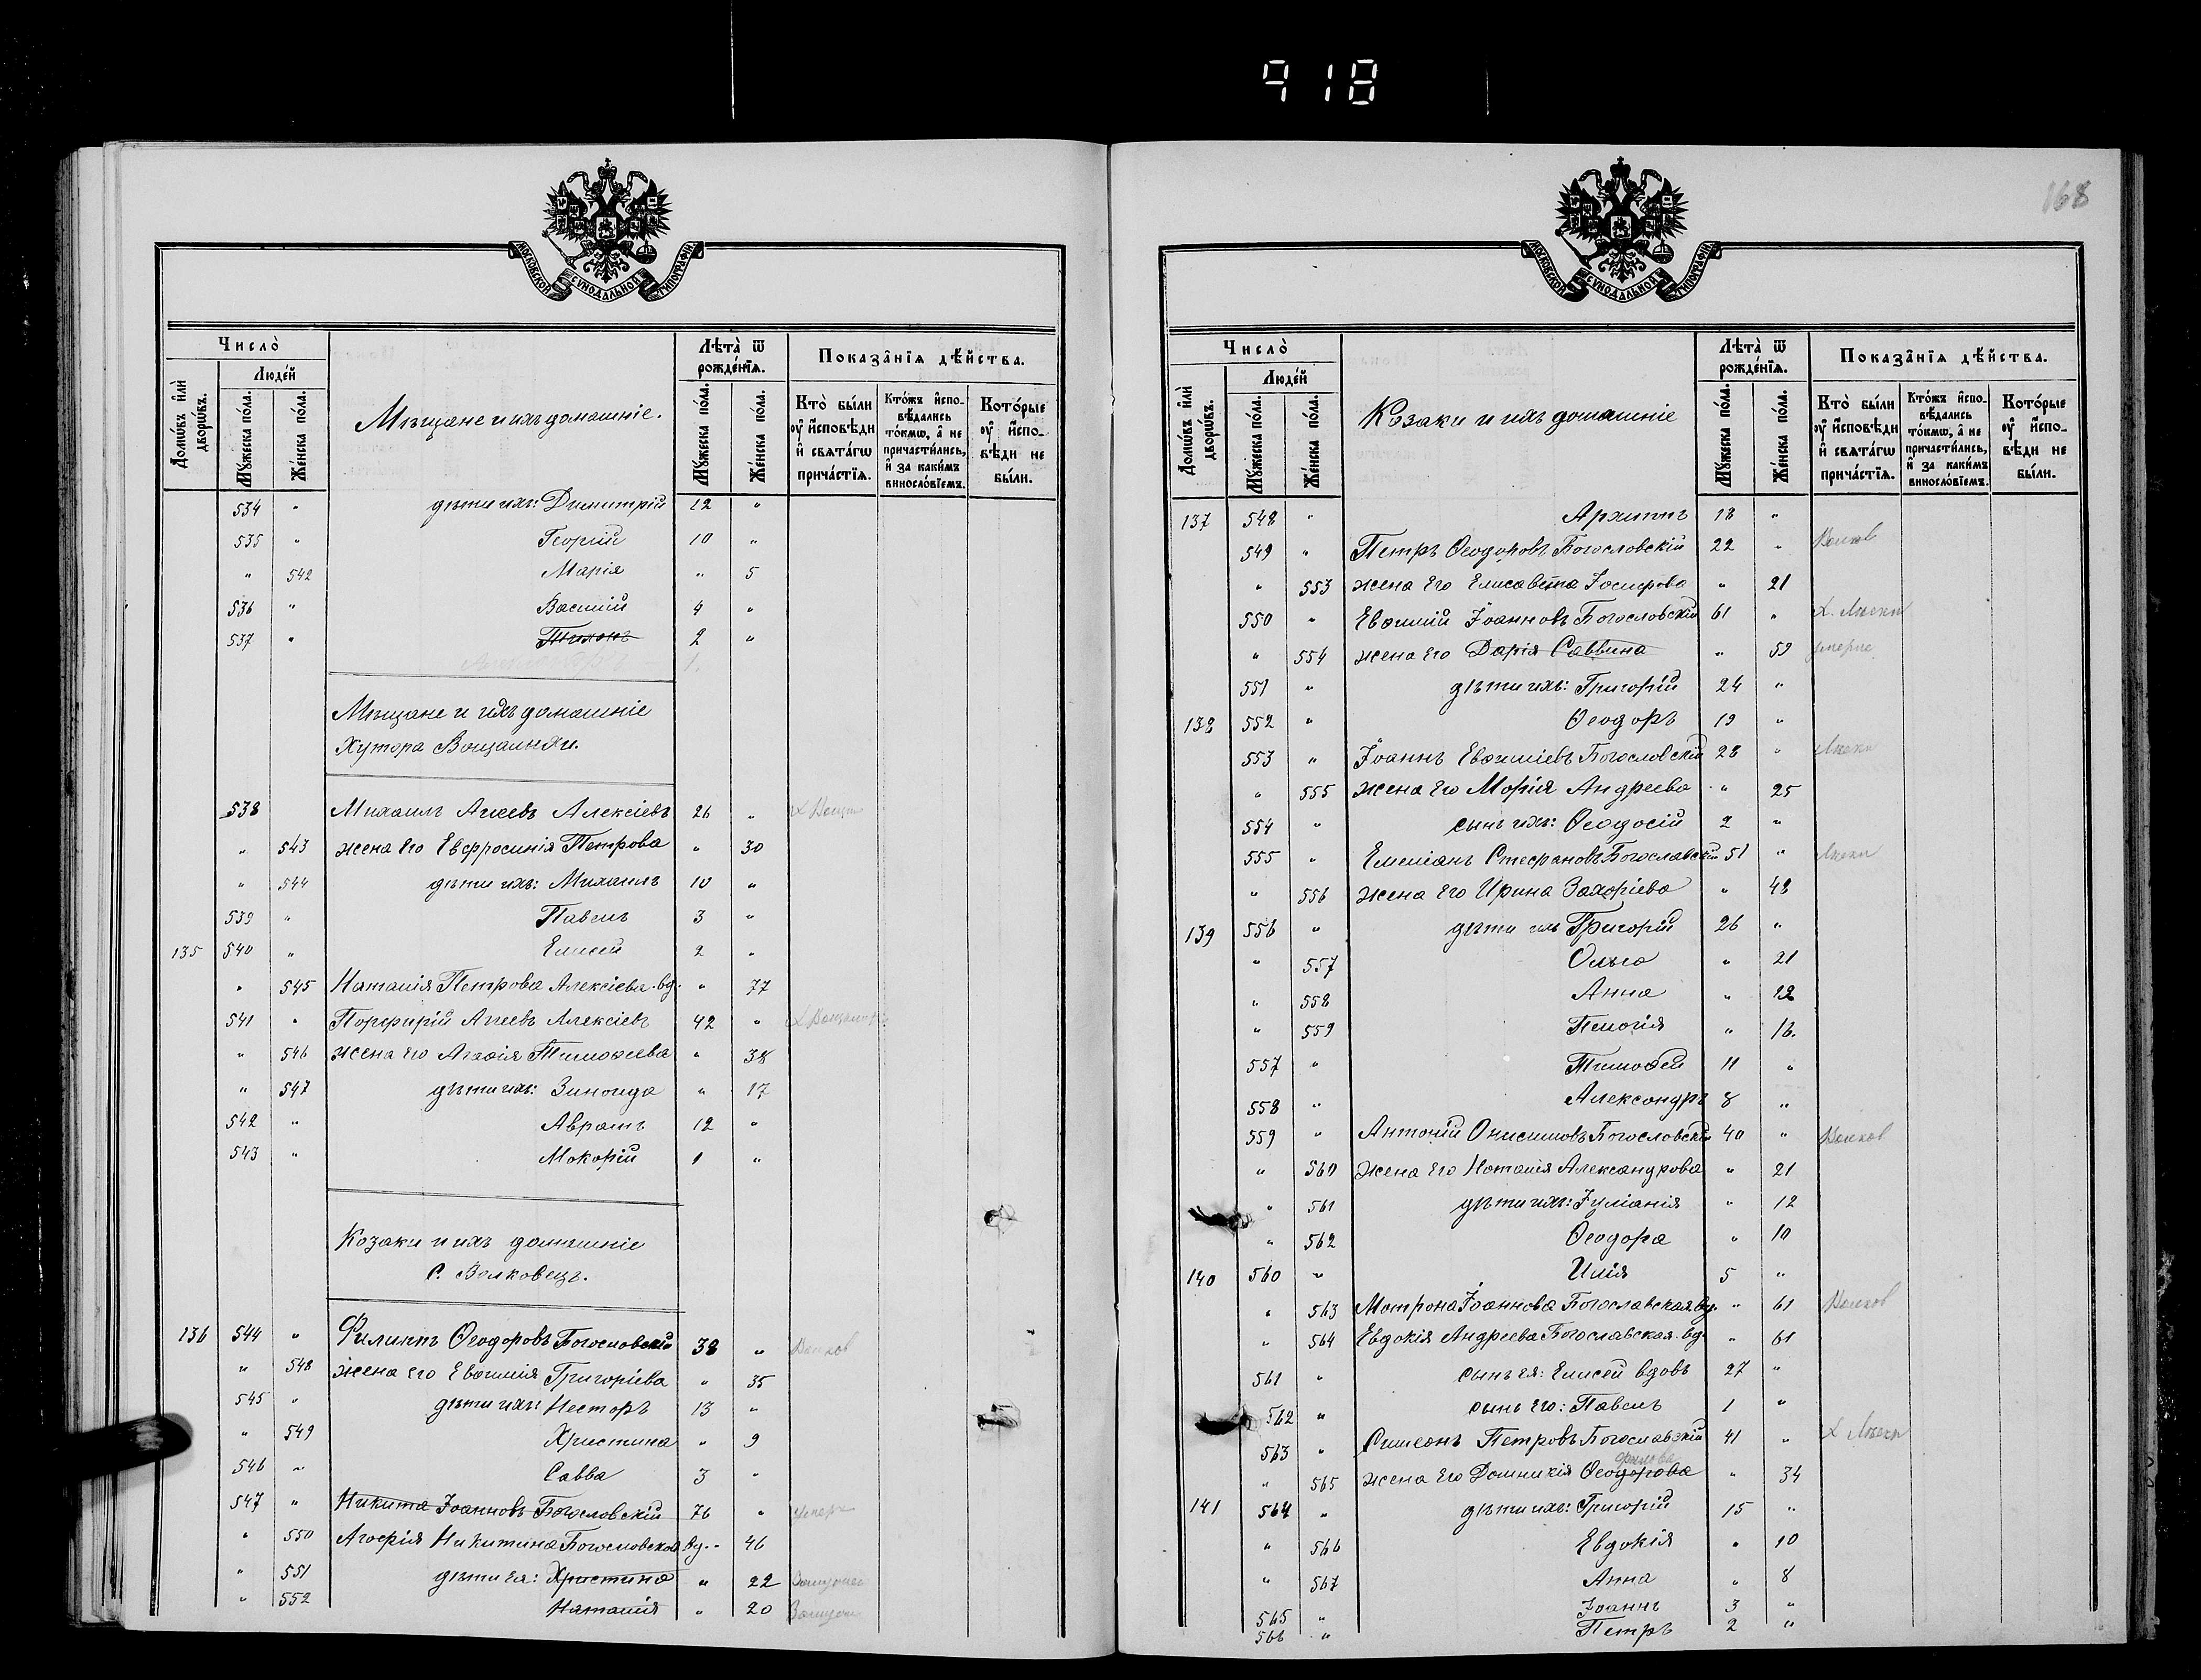 918
МОСКОВСКОЙ СѴНОДАЛЬНОЙ ТИПОГРАФІИ
Число̀
Людей
Домѡвъ и҆лѝ дворѡвъ.
Мꙋжеска по́ла.
Же́нска по́ла.
Мѣщане и ихъ домашніе.
Лѣта̀ ѿ рожде́нїѧ.
Мꙋжеска по́ла.
Же́нска по́ла.
Показа̂нїѧ дѣ́йства.
Кто̀ бы́ли оу҆ и҆сповѣди и҆ свѧта́гѡ прича́стїѧ.
Кто́жъ и҆спо-вѣ́дались то́кмѡ, а҆ не причасти́лись, и҆ за каки́мъ винослов́їемъ.
Кото́рые оу҆ и҆спо-вѣди не бы́ли.
534 " дѣти ихъ: Димитрій 12 "
535 " Георгій 10 "
" 542 Марія " 5
536 " Василій 4 "
537 " Тихонъ 2 "
1
Мѣщане и ихъ домашніе
Хутора Вощалихи.
538 Михаилъ Агеевъ Алексіевъ 26 "
" 543 жена его Евфросинія Петрова " 30
" 544 дѣти ихъ: Михаилъ 10 "
539 " Павелъ 3 "
135 540 " Елисей 2 "
" 545 Наталія Петрова Алексіева вд. " 77
541 " Порфирій Агеевъ Алексіевъ 42 "
" 546 жена его Агафія Тимоѳеева " 38
" 547 дѣти ихъ: Зинаида " 17
542 " Авраамъ 12 "
543 " Макарій 1 "
Козаки и ихъ домашніе
с. Волковецъ.
136 544 " Филиппъ Ѳеодоровъ Богословскій 38 " Волков
" 548 жена его Евѳимія Григоріева " 35
545 " дѣти ихъ: Несторъ 13 "
" 549 Христина " 9
546 " Савва 3 "
547 " Никита Іоанновъ Богословскій 76 " умеръ
" 550 Агафія Никитина Богословская вд. " 46
" 551 дѣти ея: Христина " 22
" 552 Наталія " 20
168
МОСКОВСКОЙ СѴНОДАЛЬНОЙ ТИПОГРАФІИ
Число̀
Людей
Домѡвъ и҆лѝ дворѡвъ.
Мꙋжеска по́ла.
Же́нска по́ла.
Козаки и ихъ домашніе
Лѣта̀ ѿ рожде́нїѧ.
Мꙋжеска по́ла.
Же́нска по́ла.
Показа̂нїѧ дѣ́йства.
Кто̀ бы́ли оу҆ и҆сповѣди и҆ свѧта́гѡ прича́стїѧ.
Кто́жъ и҆спо-вѣ́дались то́кмѡ, а҆ не причасти́лись, и҆ за каки́мъ винослов́їемъ.
Кото́рые оу҆ и҆спо-вѣди не бы́ли.
137 548 " Архиппъ 18 "
549 " Петръ Ѳеодоровъ Богословскій 22 " Волков
" 553 жена его Елисавета Іосифова " 21
550 " Евѳимій Іоанновъ Богословскій 61 "
" 554 жена его Дарія Саввина " 59 умерла
551 " дѣти ихъ: Григорій 24 "
138 552 " Ѳеодоръ 19 "
553 " Іоаннъ Евѳиміевъ Богословскій 28 "
" 555 жена его Марія Андреева " 25
554 " сынъ ихъ: Ѳеодосій 2 "
555 " Емеліанъ Стефановъ Богославскій 51 "
" 556 жена его Ирина Захаріева " 48
139 556 " дѣти ихъ Григорій 26 "
" 557 Ольга " 21
" 558 Анна " 12
" 559 Пелагія " 16.
557 " Тимоѳей 11 "
558 " Александръ 8 "
559 " Антоній Онисимовъ Богословскій 40 " Волков
" 560 жена его Наталія Александрова " 21
" 561 дѣти ихъ: Іуліанія " 12
" 562 Ѳеодора " 10
140 560 " Илія 5 "
" 563 Матрона Іоаннова Богославская вд. " 61 Волков
" 564 Евдокія Андреева Богославская вд. " 61
561 " сынъ ея: Елисей вдовъ 27 "
562 " сынъ его: Павелъ 1 "
563 " Симеонъ Петровъ Богославскій 41 "
" 565 жена его Домникія Ѳеодорова " 34
141 564 " дѣти ихъ: Григорій 15 "
" 566 Евдокія " 10
" 567 Анна " 8
565 " Іоаннъ 3 "
566 " Петръ 2 "